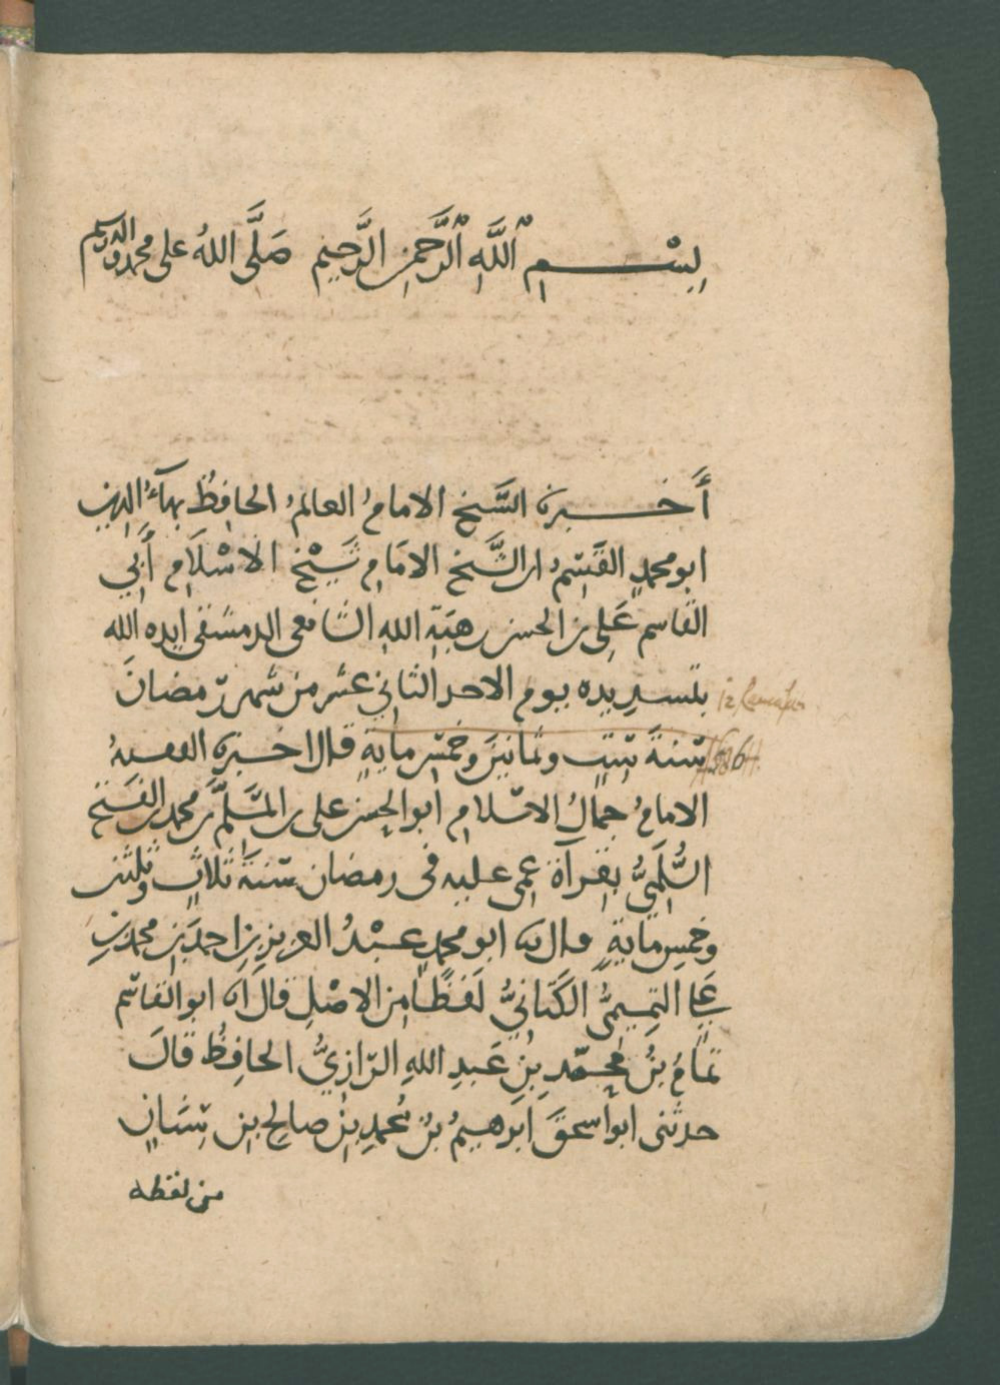 بِسْمِ ٱللَّهِ ٱلرَّحْمٰنِ الرَّحِيمِ صَلَّى اللهُ على محمد وآله وسلم
أَخبرنا الشَّيخ الامامُ العالمُ الحافِظُ بهآءُ الدين
ابو محمدٍ القَسِمُ ابن الشَّيخ الامَام شَيْخ الاسْلَام أَبي
القاسم عَلي بن الحسن بن هبَةِ الله الشافعى الدمشقى ايده الله
بتسديده يوم الاحد الثاني عشر من شهر رمضانَ
12 Ramadan
سنةَ ستٍ وثمانينَ وخمس مايةٍ قال اخبرنا الفقيهُ
586 H.
الامامُ جمالُ الاسلام ابو الحسن على بن المسَلَّم بن محمد بن الفتح
السُّلَمِيُّ بقرآة عمى عليه فى رمضان سنةَ ثلاثٍ وثلثين
وخمس مايةٍ قال نا ابو محمدٍ عَبْدُ العزيزِ بن احمدَ بن محمد بن
عَلي التمِيميُّ الكَتانيُّ لَفظًا من الاصْلِ قال انا ابو القاسم
تمامُ بنُ مُحمّدِ بنِ عَبدِ اللهِ الرّازيُّ الحافِظُ قالَ
حدثنى ابو اسحقَ ابرهيمُ بنُ مُحمدِ بنِ صالحِ بنِ سِنَانٍ
من لفظه